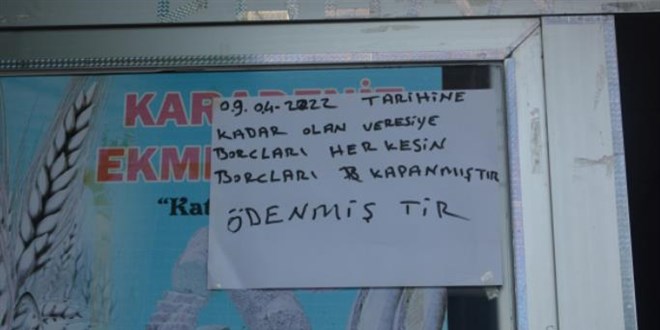 KARADENİZ
EKM
"Kat
09.04-2022 TARİHİNE
KADAR OLAN VERESİYE
BORCLARI HERKESİN
BORCLARI KAPANMIŞTIR
ÖDENMİŞ TİR